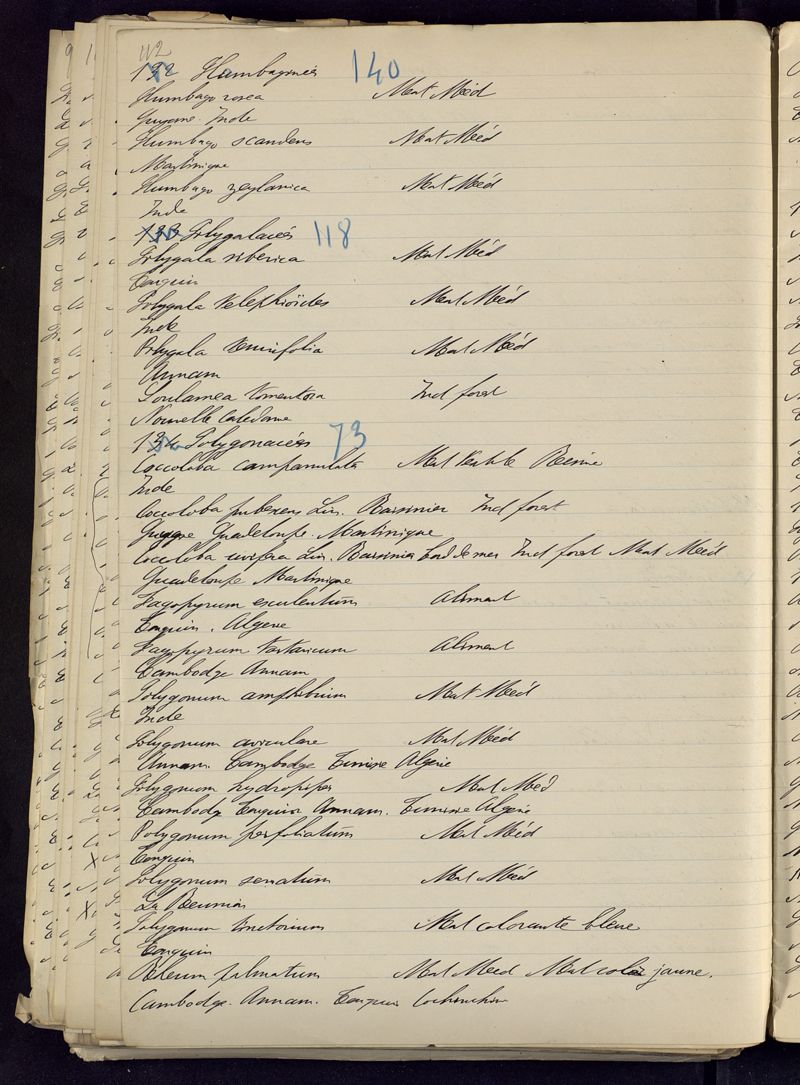 112
192 Plumbaginées 140
Plumbago rosea Mat Méd
Guyane. Inde
Plumbago scandens Mat Méd
Martinique
Plumbago zeylanica Mat Méd
Inde
193 Polygalacées 118
Polygala siberica Mat Méd
Tonquin
Polygala telephioïdes Mat Méd
Inde
Polygala tenuifolia Mat Méd
Annam
Soulamea tomentosa Ind forest
Nouvelle Caledonie
194 Polygonacées 73
Coccoloba campanulata Mat textile Resine
Inde
Coccoloba pubescens Lin. Raisinier Ind forest
Guadeloupe. Martinique
Coccoloba uvifera Lin. Raisinier bord de mer Ind forest Mat Méd
Guadeloupe Martinique
Fagopyrum esculentum Aliment
Tonquin. Algerie
Fagopyrum tartaricum Aliment
Cambodge Annam
Polygonum amphibium Mat Méd
Inde
Polygonum aviculare Mat Méd
Annam. Cambodge Tunisie Algerie
Polygonum hydropiper Mat Méd
Cambodg Tonquin Annam. Tunisie Algerie
Polygonum perfoliatum Mat Méd
Tonquin
Polygonum serratum Mat Méd
La Reunion
Polygonum tinctorium Mat colorante bleue
Tonquin
Rheum palmatum Mat Med Mat color jaune.
Cambodge. Annam. Tonquin Cochinchin